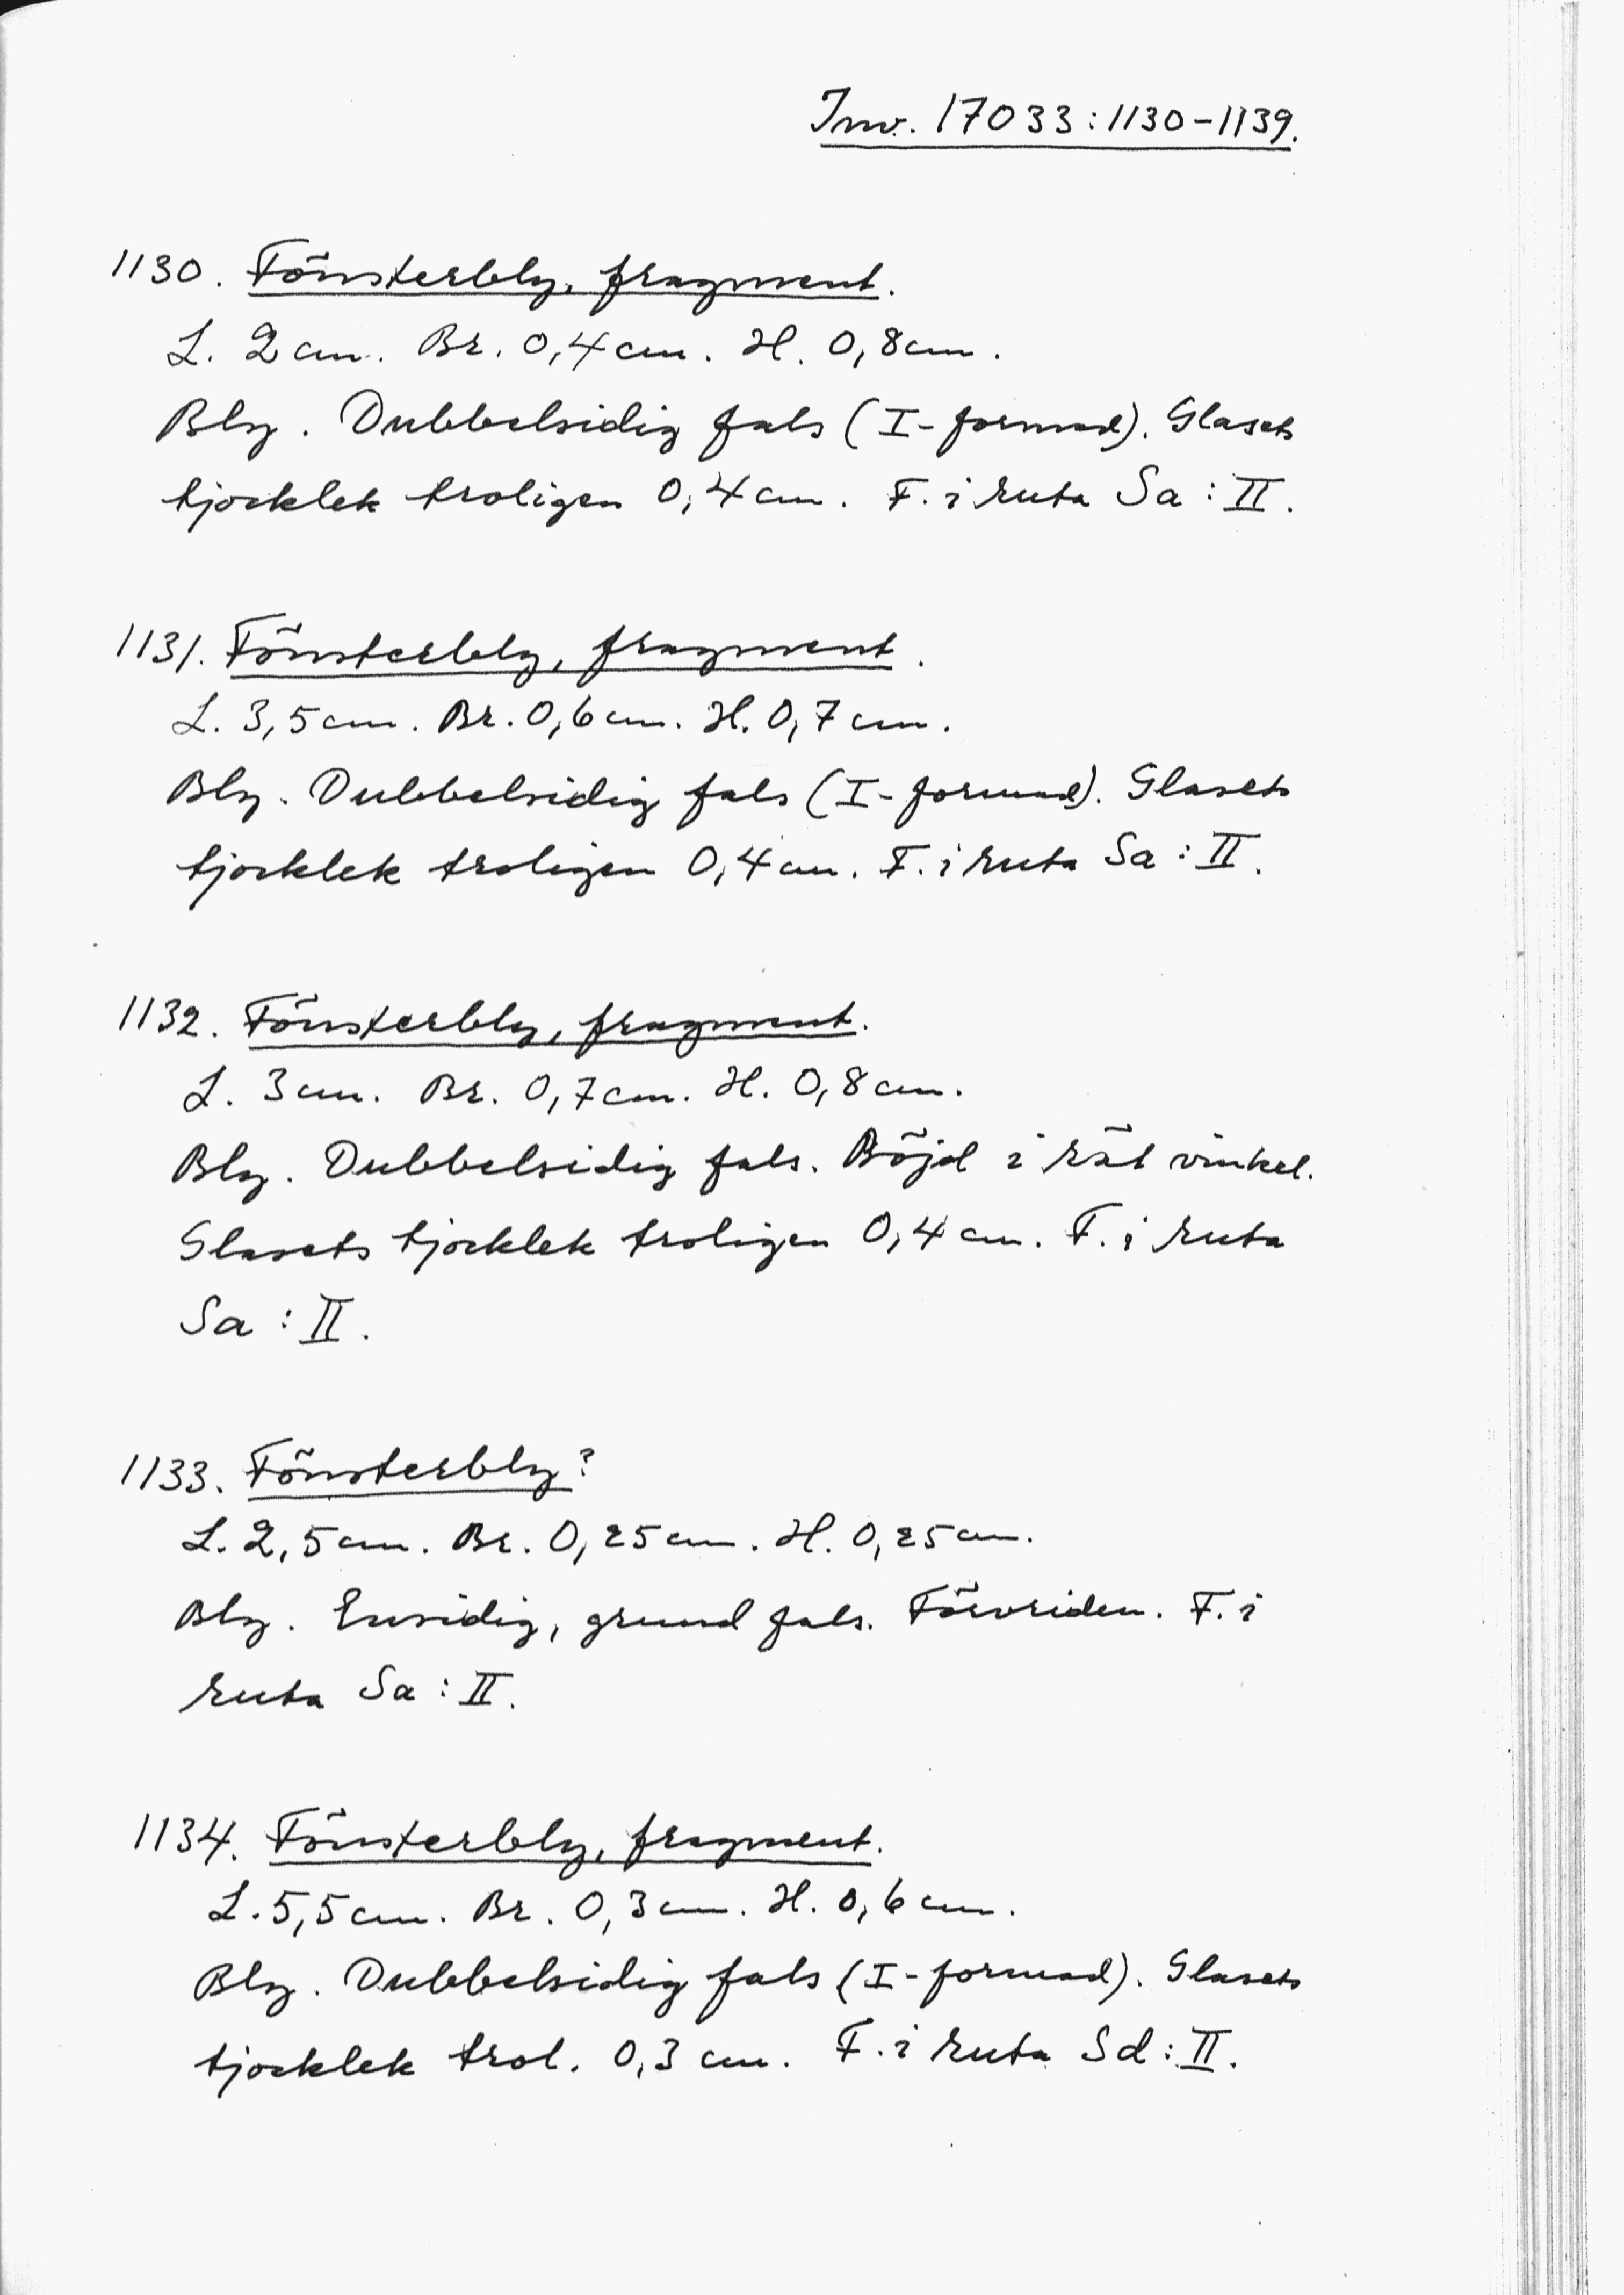 Inv. 17033:1130-1139.
1130. Fönsterbly, fragment.
L. 2 cm. Br. 0,4 cm. H. 0,8 cm.
Bly. Dubbelsidig fals (I-formad). Glasets
tjocklek troligen 0,4 cm. F. i ruta Sa:II.
1131. Fönsterbly, fragment.
L. 3,5 cm. Br. 0,6 cm. H. 0,7 cm.
Bly. Dubbelsidig fals (I-formad). Glasets
tjocklek troligen 0,4 cm. F. i ruta Sa:II.
1132. Fönsterbly, fragment.
L. 3 cm. Br. 0,7 cm. H. 0,8 cm.
Bly. Dubbelsidig fals. Böjd i rät vinkel.
Glasets tjocklek troligen 0,4 cm. F. i ruta
Sa:II.
1133. Fönsterbly?
L. 2,5 cm. Br. 0,25 cm. H. 0,25 cm.
Bly. Ensidig, grund fals. Förvriden. F. i
ruta Sa:II.
1134. Fönsterbly, fragment.
L. 5,5 cm. Br. 0,3 cm. H. 0,6 cm.
Bly. Dubbelsidig fals (I-formad). Glasets
tjocklek trol. 0,3 cm. F. i ruta Sd:II.